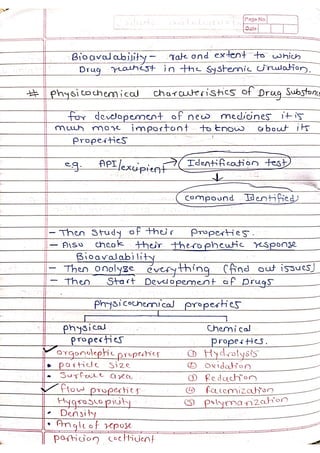 Page No.
Date
Bioavalability - rate and extent to which
Drug reachest in the systemic cirulation.
# Physicochemical characteristics of Drug Substanc
for developement of new medicines it is
much more important to know about its
Properties
eg. API/excipient → Identification test
compound Identified
- Then study of their Properties.
- Also cheak their therapheutic response
Bioavalability
- Then analyze everything (find out issues)
- Then Start Developement of Drugs
Physicochemical properties
physical properties
Chemical properties.
✓ organoleptic properties ① Hydrolysis
• particle size ② Oxidation
• Surface area ③ Reduction
✓ flow properties ④ Racemization
Hygroscopicity ⑤ Polymarization
• Density
• Angle of repose
partition coefficient